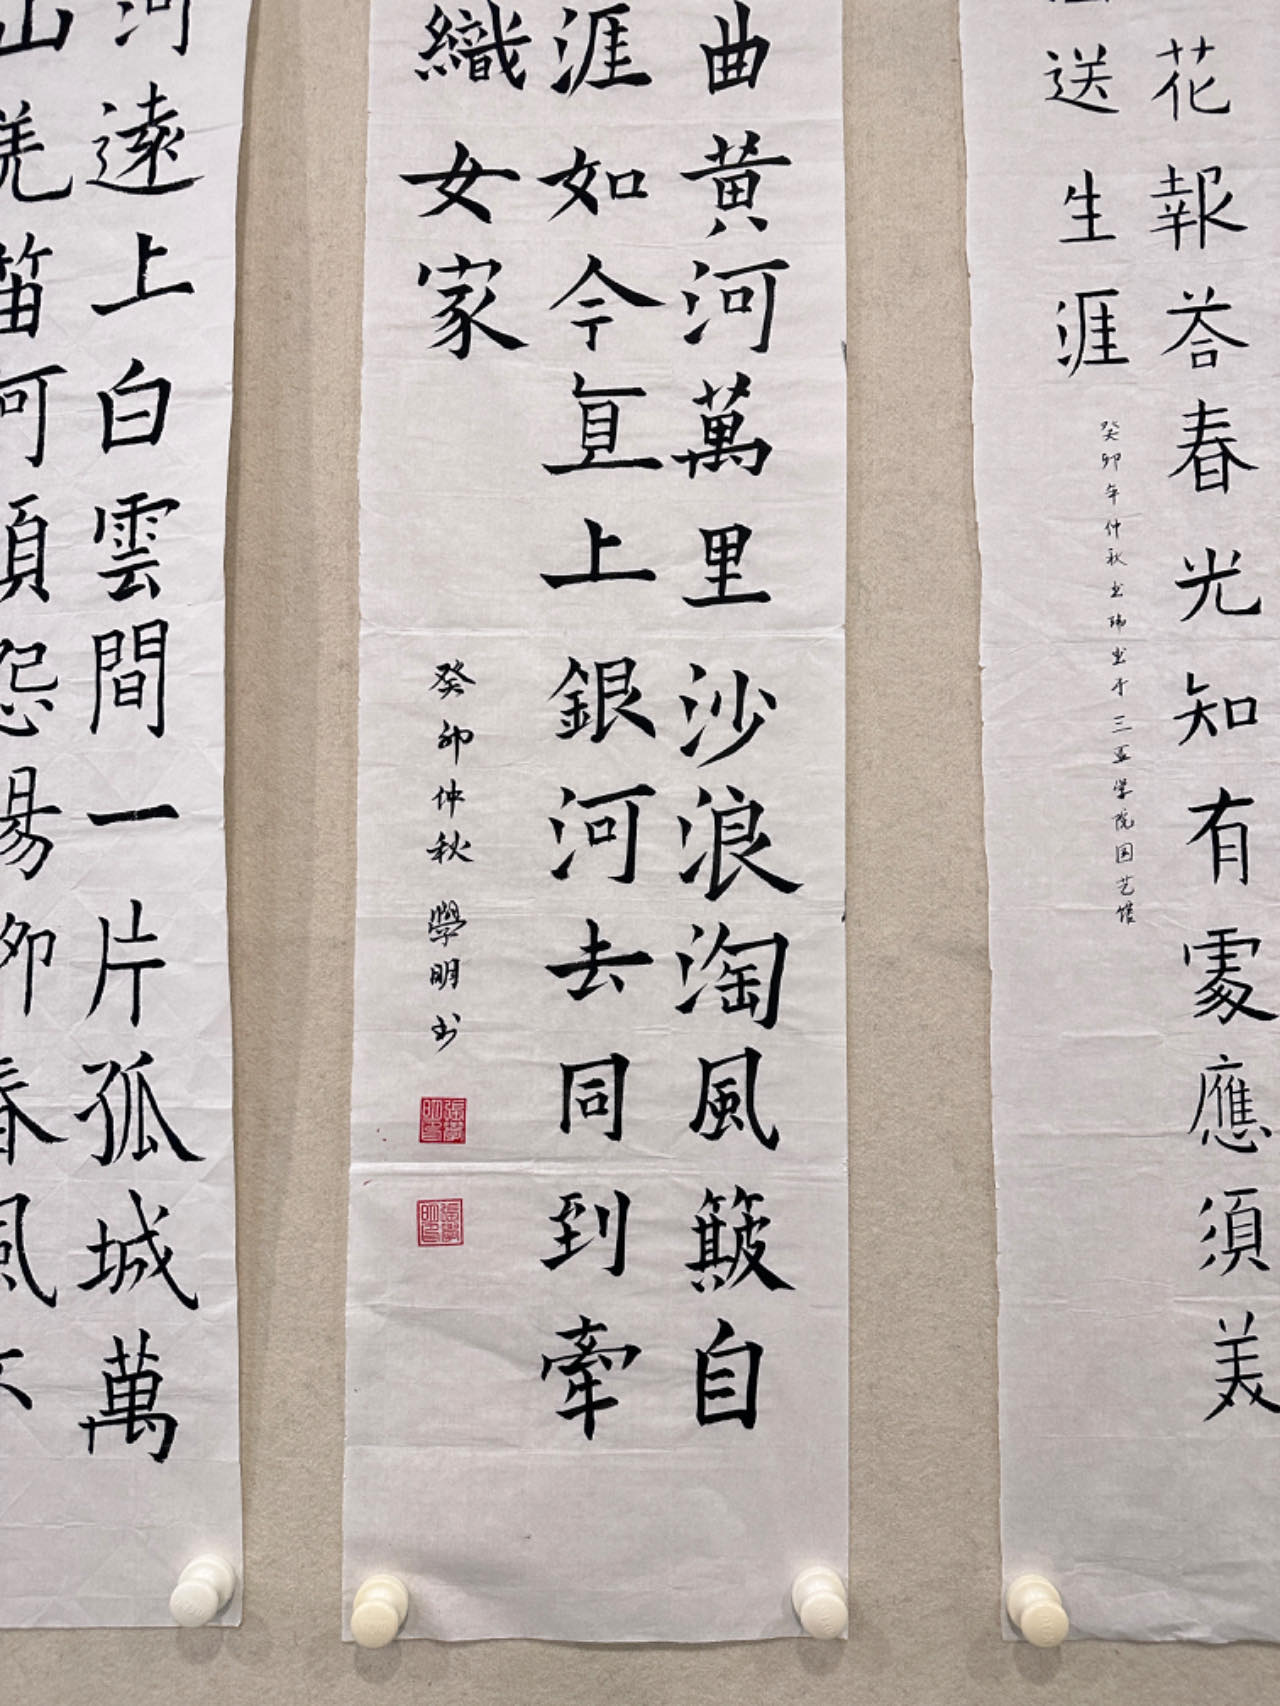 花報荅春光知有處應須美
送生涯
癸卯年仲秋 书于三亚学院国艺馆
曲黃河萬里沙浪淘風簸自
涯如今直上銀河去同到牽
織女家
癸卯仲秋 學明书
河遠上白雲間一片孤城萬
山羌笛何須怨楊柳春風不